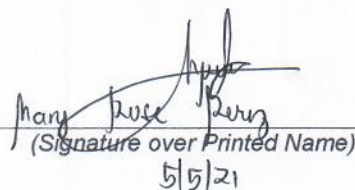 Mary Rose
(Signature over Printed Name)
5/5/21